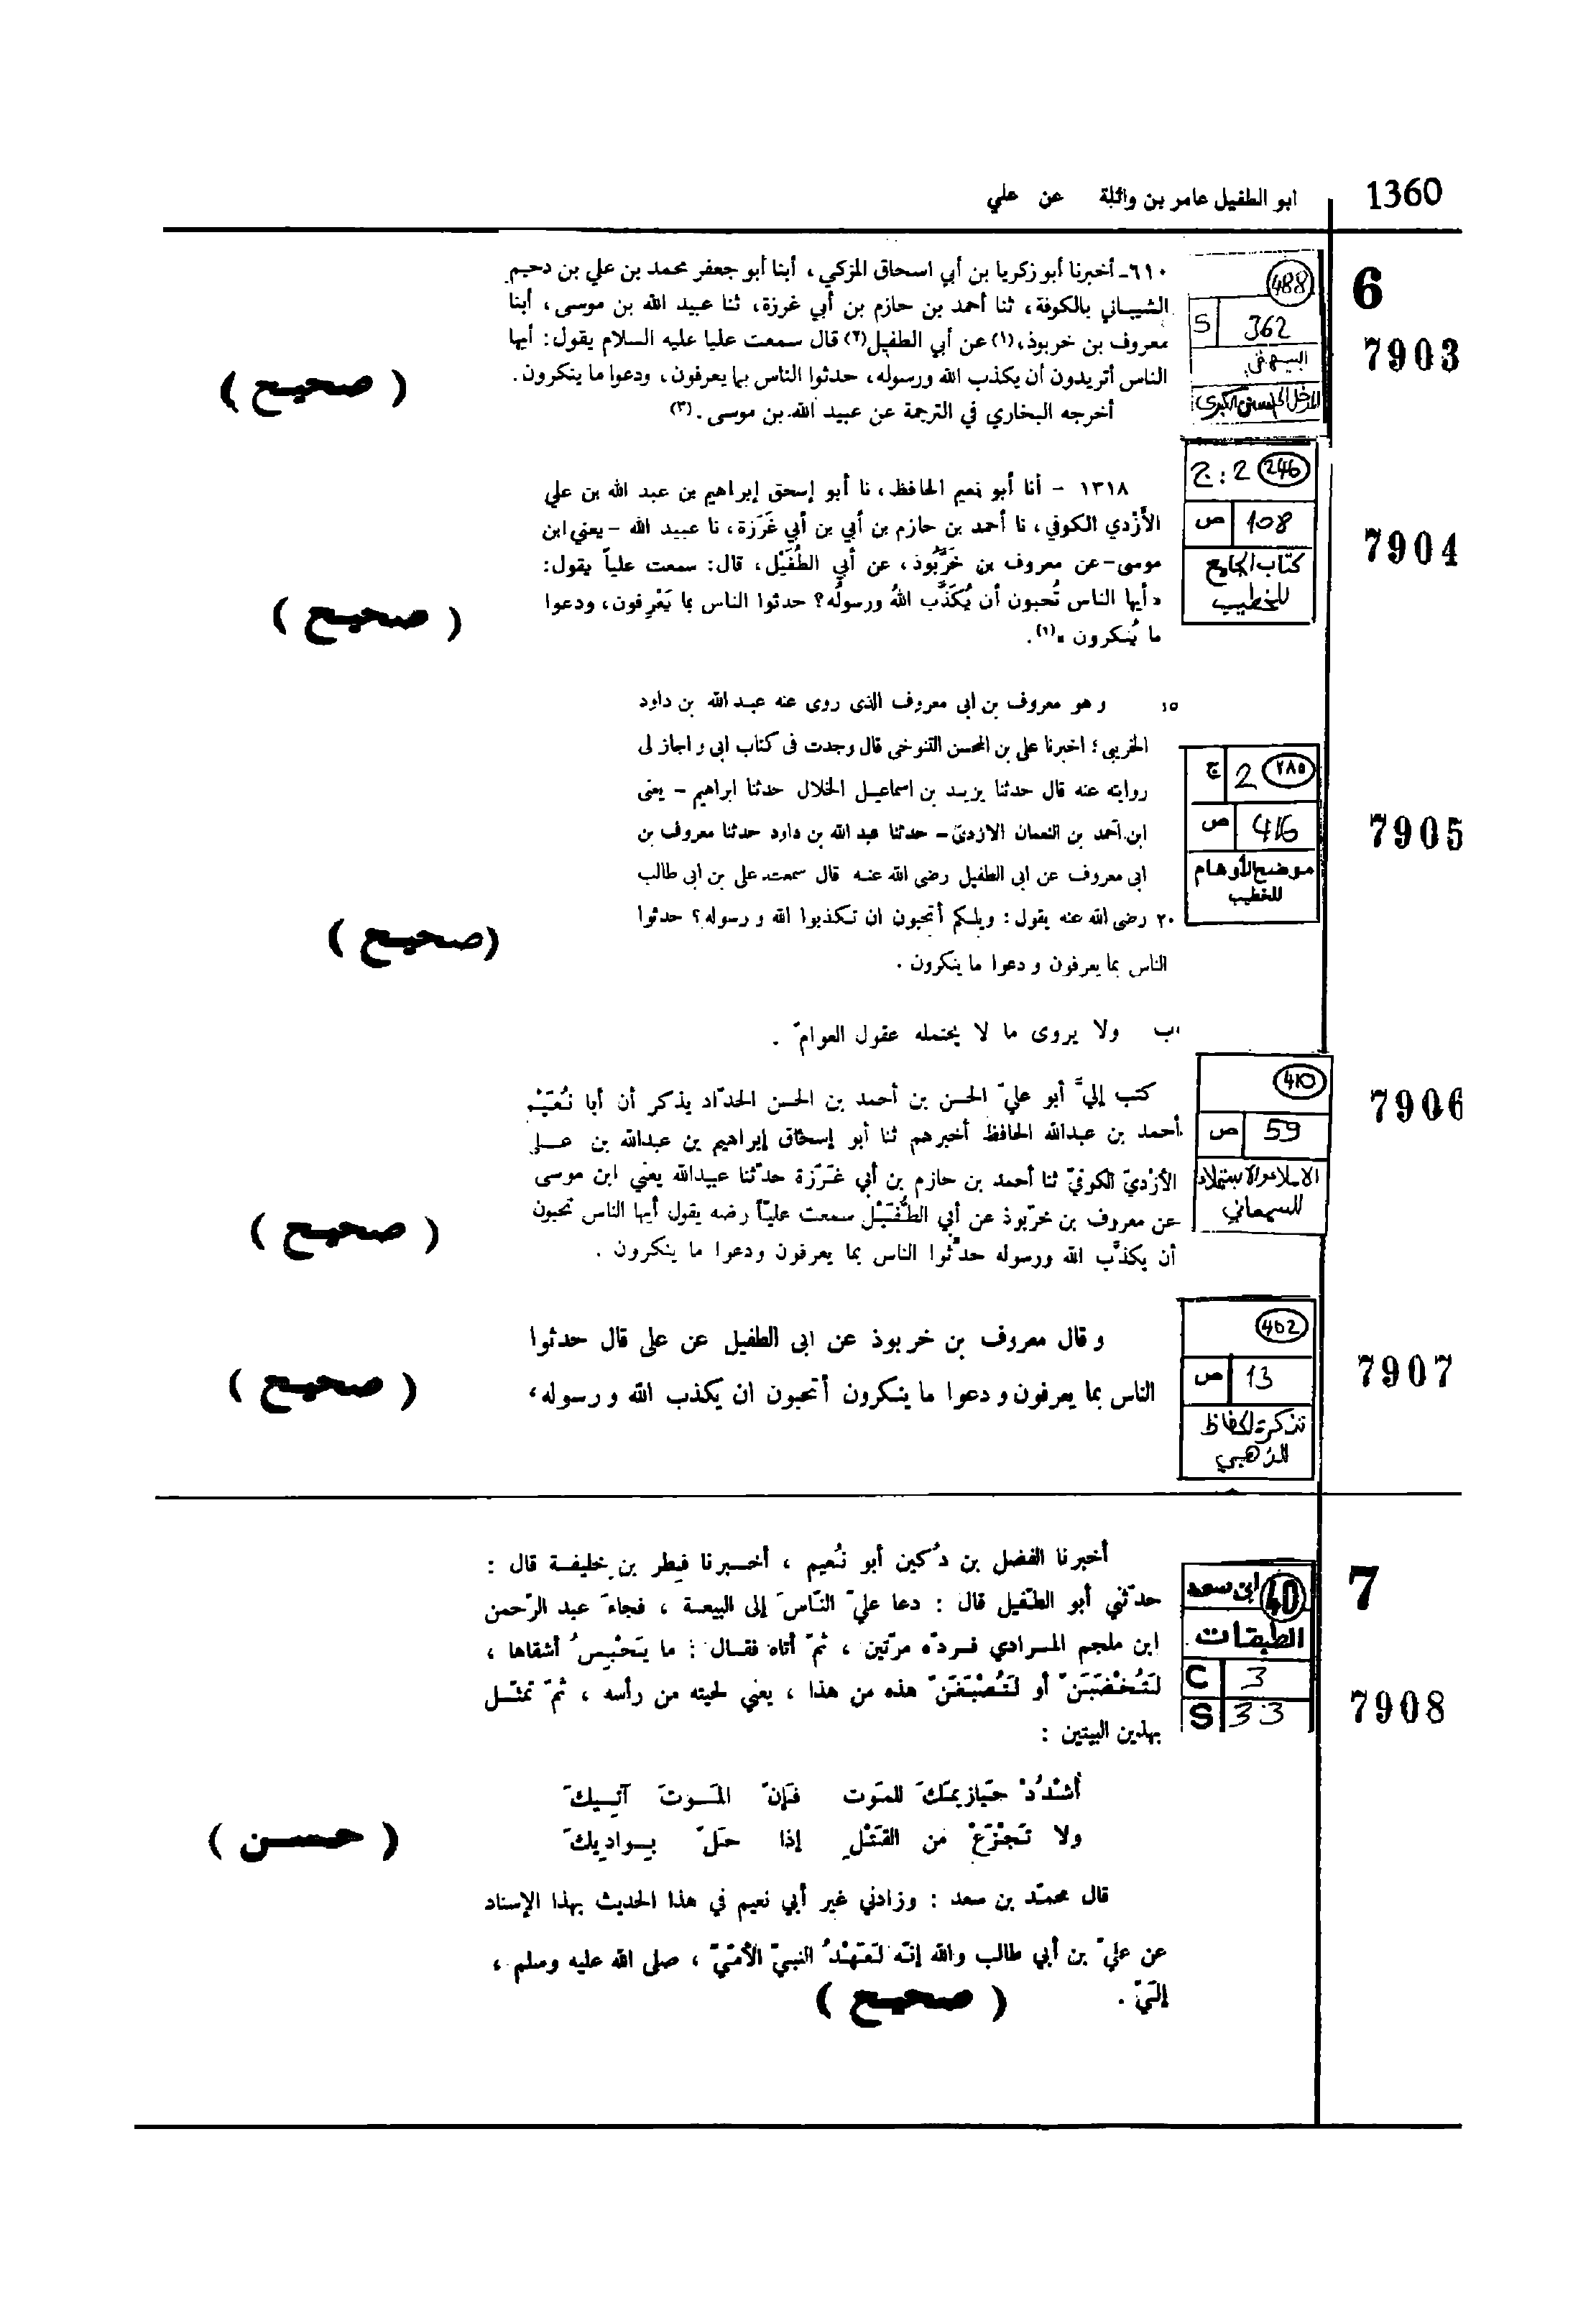 1360
ابو الطفيل عامر بن واثلة عن علي
6
7903
488
S 362
البيهقي
المدخل إلى السنن الكبرى
٦١٠- أخبرنا أبو زكريا بن أبي اسحاق المزكي، أبنا أبو جعفر محمد بن علي بن دحيم
الشيباني بالكوفة، ثنا أحمد بن حازم بن أبي غرزة، ثنا عبيد الله بن موسى، أبنا
معروف بن خربوذ،(١) عن أبي الطفيل(٢) قال سمعت عليا عليه السلام يقول: أيها
الناس أتريدون أن يكذب الله ورسوله، حدثوا الناس بما يعرفون، ودعوا ما ينكرون.
أخرجه البخاري في الترجمة عن عبيد الله بن موسى.(٣)
( صحيح )
7904
246 ج: 2
ص 108
كتاب الجامع
للخطيب
١٣١٨ - أنا أبو نعيم الحافظ، نا أبو إسحق إبراهيم بن عبد الله بن علي
الأَزْدي الكوفي، نا أحمد بن حازم بن أبي بن أبي غَرَزة، نا عبيد الله - يعني ابن
موسى - عن معروف بن خَرَّبُوذ، عن أبي الطُفَيْل، قال: سمعت علياً يقول:
«أيها الناس تُحبون أن يُكَذَّب اللهُ ورسولُه؟ حدثوا الناس بما يَعْرِفون، ودعوا
ما يُنكرون»(١).
( صحيح )
7905
٢٨٥ 2 ج
ص 416
موضح الأوهام
للخطيب
١٥ وهو معروف بن ابى معروف الذى روى عنه عبد الله بن داود
الخريبى؛ اخبرنا على بن المحسن التنوخى قال وجدت فى كتاب ابى و اجاز لى
روايته عنه قال حدثنا يزيد بن اسماعيل الخلال حدثنا ابراهيم - يعنى
ابن احمد بن النعمان الازدىّ - حدثنا عبد الله بن داود حدثنا معروف بن
ابى معروف عن ابى الطفيل رضى الله عنه قال سمعت على بن ابى طالب
٢٠ رضى الله عنه يقول: ويلكم أتحبون ان تكذبوا الله و رسوله؟ حدثوا
الناس بما يعرفون و دعوا ما ينكرون.
(صحيح)
7906
410
ص 59
الاملاء والاستملاء
للسمعاني
ب ولا يروى ما لا يحتمله عقول العوامّ.
كتب إليّ أبو عليّ الحسن بن أحمد بن الحسن الحدّاد يذكر أن أبا نُعَيْم
أحمد بن عبدالله الحافظ أخبرهم ثنا أبو إسحاق إبراهيم بن عبدالله بن علي
الأزْديّ الكوفيّ ثنا أحمد بن حازم بن أبي غَرَزة حدّثنا عبيدالله يعني ابن موسى
عن معروف بن خرّبوذ عن أبي الطُّفَيْل سمعت عليّاً رضه يقول أيها الناس تحبون
أن يكذَّب الله ورسوله حدّثوا الناس بما يعرفون ودعوا ما ينكرون.
( صحيح )
7907
402
ص 13
تذكرة الحفاظ
للذهبي
و قال معروف بن خربوذ عن ابى الطفيل عن على قال حدثوا
الناس بما يعرفون و دعوا ما ينكرون أتحبون ان يكذب الله و رسوله،
( صحيح )
7
7908
40 ابن سعد
الطبقات
C 3
S 33
أخبرنا الفضل بن دُكين أبو نُعيم، أخبرنا فِطر بن خليفة قال:
حدّثني أبو الطّفيل قال: دعا عليّ النّاسَ إلى البيعة، فجاءَ عبد الرّحمن
ابن ملجم المرادي فردّه مرّتين، ثمّ أتاه فقال: ما يَحْبِسُ أشقاها،
لَتُخْضَبَنّ أو لَتُصْبَغَنّ هذه من هذا، يعني لحيته من رأسه، ثمّ تمثّل
بهذين البيتين:
أشْدُدْ حَيازيمَكَ للمَوت فَإنّ المَوتَ آتيكَ
ولا تَجْزَعْ من القَتْلِ إذا حَلّ بِواديكَ
( حسن )
قال محمّد بن سعد: وزادني غير أبي نعيم في هذا الحديث بهذا الإسناد
عن عليّ بن أبي طالب والله إنّه لَعَهْدُ النبيّ الأمّيّ، صلى الله عليه وسلم،
إليّ.
( صحيح )